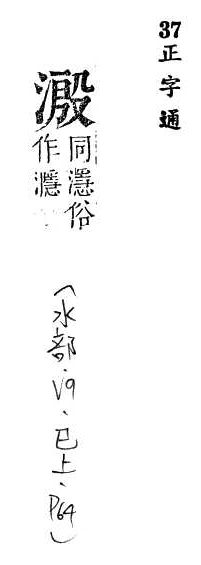 37 正字通
溵
同濦俗
作㶏
（水部．V9．巳上．P64）